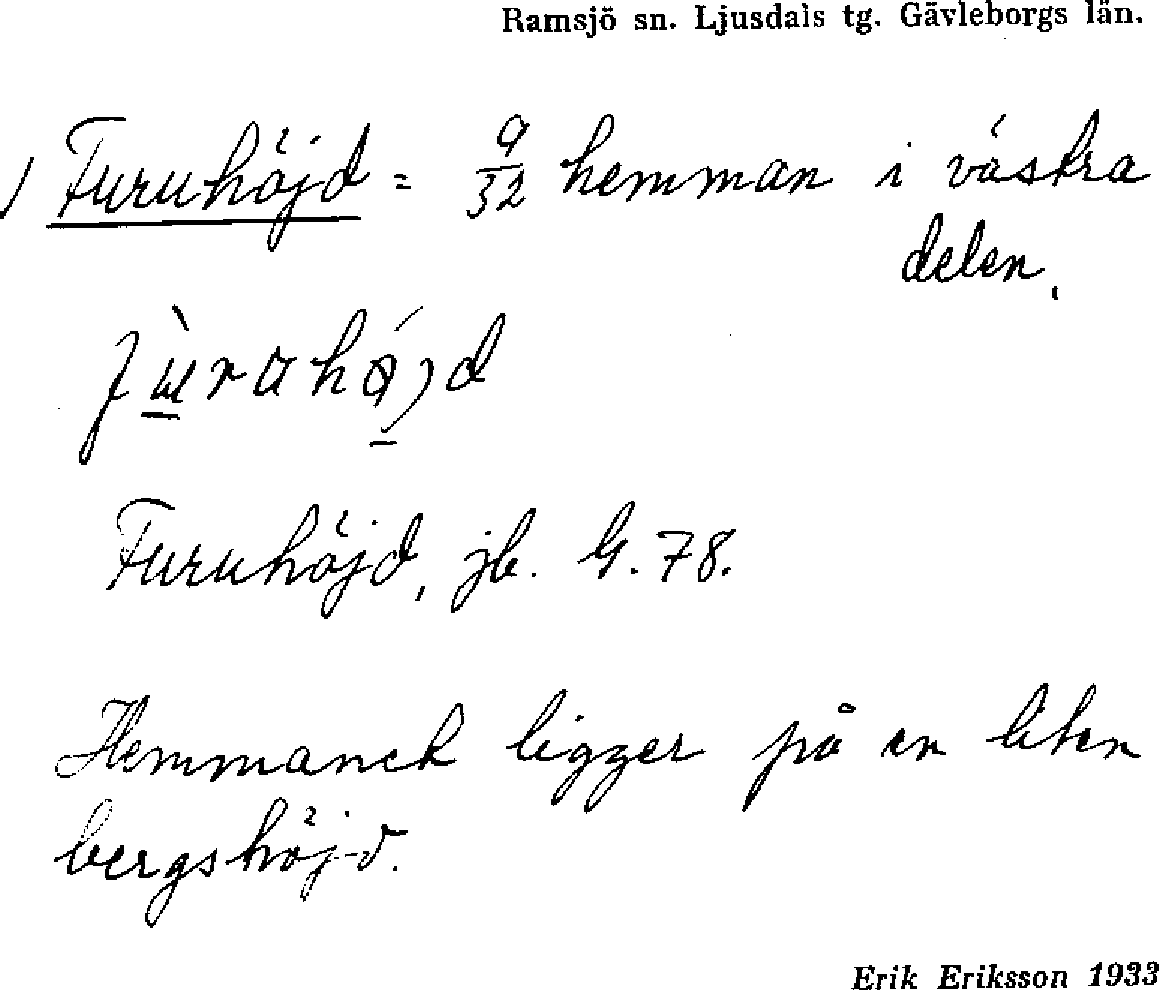 Ramsjö sn. Ljusdals tg. Gävleborgs län.
Furuhöjd = 9/32 hemman i västra
delen.
Furuhöjd, jb. G. 78.
Hemmanet ligger på en liten
bergshöjd.
Erik Eriksson 1933